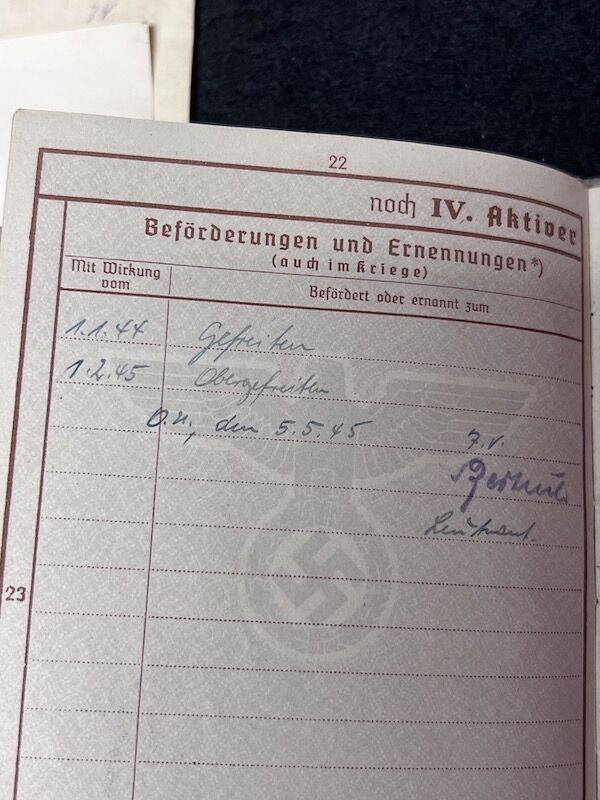 22
noch IV. Aktiver
Beförderungen und Ernennungen*)
(auch im Kriege)
Mit Wirkung vom
Befördert oder ernannt zum
1.1.44 Gefreiten
1.2.45 Obergefreiten
O.U., den 5.5.45 J.V.
Leutnant.
23